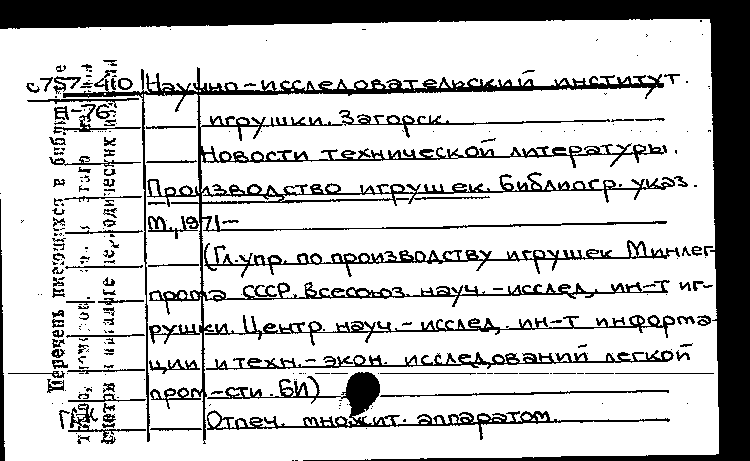 с757-410
-76
Научно-исследовательский институт.
игрушки. Загорск.
Новости технической литературы.
Производство игрушек. Библиогр. указ.
М., 1971—
(Гл. упр. по производству игрушек Минлег-
прома СССР. Всесоюз. науч.-исслед. ин-т иг-
рушки. Центр. науч.-исслед. ин-т информа-
ции и техн.-экон. исследований легкой
пром-сти. БИ)
Отпеч. множит. аппаратом.
Перечень имеющихся в библиотеке
смотри в каталоге периодических изданий